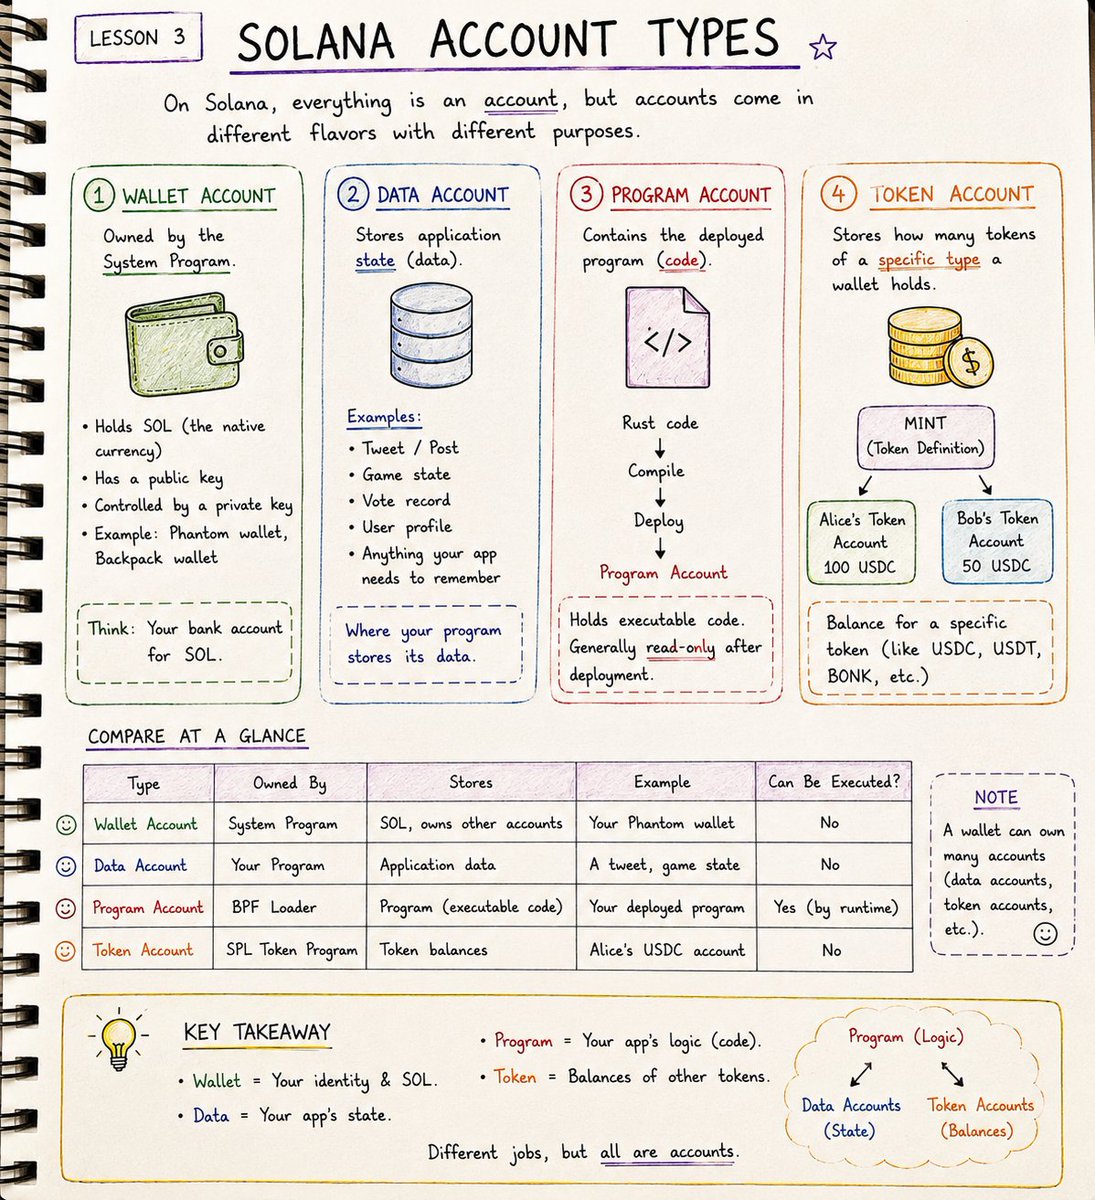 LESSON 3
SOLANA ACCOUNT TYPES
On Solana, everything is an account, but accounts come in
different flavors with different purposes.
1 WALLET ACCOUNT
Owned by the
System Program.
• Holds SOL (the native
currency)
• Has a public key
• Controlled by a private key
• Example: Phantom wallet,
Backpack wallet
Think: Your bank account
for SOL.
2 DATA ACCOUNT
Stores application
state (data).
Examples:
• Tweet / Post
• Game state
• Vote record
• User profile
• Anything your app
needs to remember
Where your program
stores its data.
3 PROGRAM ACCOUNT
Contains the deployed
program (code).
</>
Rust code
Compile
Deploy
Program Account
Holds executable code.
Generally read-only after
deployment.
4 TOKEN ACCOUNT
Stores how many tokens
of a specific type a
wallet holds.
$
MINT
(Token Definition)
Alice's Token
Account
100 USDC
Bob's Token
Account
50 USDC
Balance for a specific
token (like USDC, USDT,
BONK, etc.)
COMPARE AT A GLANCE
Type Owned By Stores Example Can Be Executed?
Wallet Account System Program SOL, owns other accounts Your Phantom wallet No
Data Account Your Program Application data A tweet, game state No
Program Account BPF Loader Program (executable code) Your deployed program Yes (by runtime)
Token Account SPL Token Program Token balances Alice's USDC account No
NOTE
A wallet can own
many accounts
(data accounts,
token accounts,
etc.).
KEY TAKEAWAY
• Wallet = Your identity & SOL.
• Data = Your app's state.
• Program = Your app's logic (code).
• Token = Balances of other tokens.
Different jobs, but all are accounts.
Program (Logic)
Data Accounts
(State)
Token Accounts
(Balances)